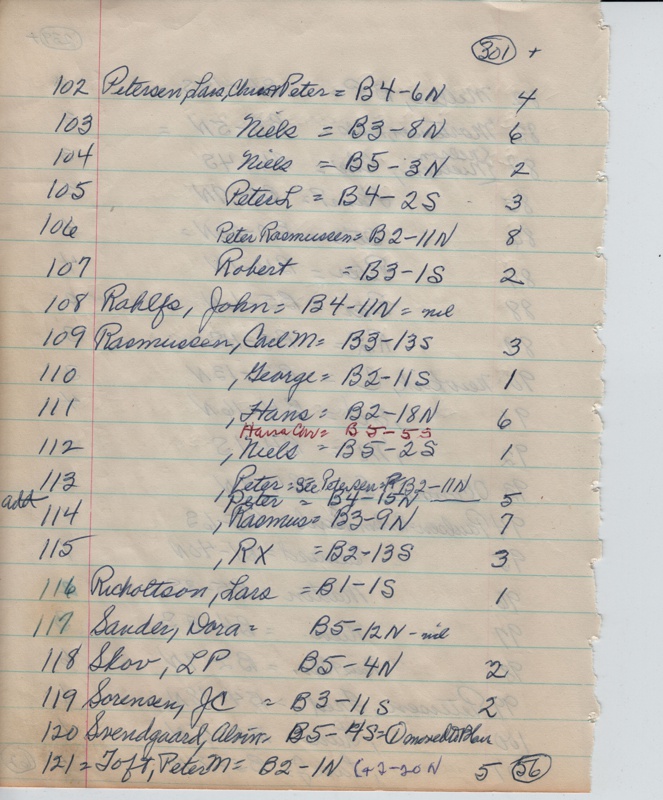 301 +
102 Petersen, Lars, Chris + Peter = B4-6N 4
103 Niels = B3-8N 6
104 Niels = B5-3N 2
105 Peter L = B4-2S 3
106 Peter Rasmussen = B2-11N 8
107 Robert = B3-1S 2
108 Rahlfs, John = B4-11N = nil
109 Rasmussen, Carl M = B3-13S 3
110 , George = B2-11S 1
111 , Hans = B2-18N 6
Hans Chr = B5-5S
112 , Niels = B5-2S 1
113 , Peter = See Petersen = B2-11N
add Peter = B4-15N 5
114 , Rasmus = B3-9N 7
115 , RX = B2-13S 3
116 Richottson, Lars = B1-1S 1
117 Sander, Dora = B5-12N - nil
118 Skov, LP B5-4N 2
119 Sorensen, JC = B3-11S 2
120 Svendgaard, Alvin = B5-4S = 1 moved to Blair
121 = Toft, Peter M = B2-1N (+2-20N 5 56